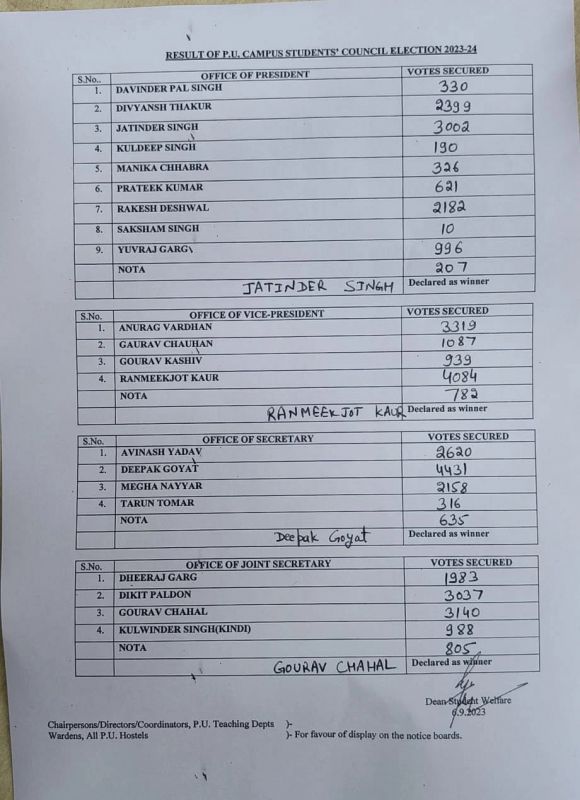 RESULT OF P.U. CAMPUS STUDENTS' COUNCIL ELECTION 2023-24
S.No.. OFFICE OF PRESIDENT VOTES SECURED
1. DAVINDER PAL SINGH 330
2. DIVYANSH THAKUR 2399
3. JATINDER SINGH 3002
4. KULDEEP SINGH 190
5. MANIKA CHHABRA 326
6. PRATEEK KUMAR 621
7. RAKESH DESHWAL 2182
8. SAKSHAM SINGH 10
9. YUVRAJ GARG 996
NOTA 207
JATINDER SINGH Declared as winner
S.No. OFFICE OF VICE-PRESIDENT VOTES SECURED
1. ANURAG VARDHAN 3319
2. GAURAV CHAUHAN 1087
3. GOURAV KASHIV 939
4. RANMEEKJOT KAUR 4084
NOTA 782
RANMEEKJOT KAUR Declared as winner
S.No. OFFICE OF SECRETARY VOTES SECURED
1. AVINASH YADAV 2620
2. DEEPAK GOYAT 4431
3. MEGHA NAYYAR 2158
4. TARUN TOMAR 316
NOTA 635
Deepak Goyat Declared as winner
S.No. OFFICE OF JOINT SECRETARY VOTES SECURED
1. DHEERAJ GARG 1983
2. DIKIT PALDON 3037
3. GOURAV CHAHAL 3140
4. KULWINDER SINGH(KINDI) 988
NOTA 805
GOURAV CHAHAL Declared as winner
Dean Student Welfare
6.9.2023
Chairpersons/Directors/Coordinators, P.U. Teaching Depts )-
Wardens, All P.U. Hostels )- For favour of display on the notice boards.